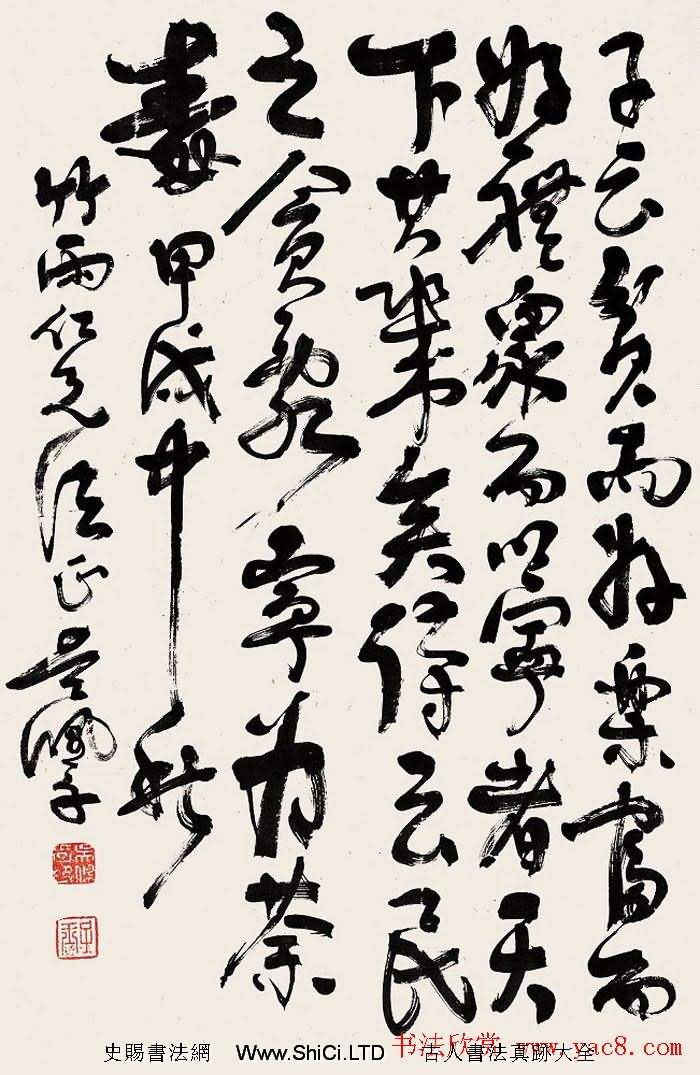 子云貧而好樂富而
好禮衆而以寧者天
下其幾矣詩云民
之貪亂寧為荼
毒甲戌中秋
竹雨仁兄法正吳佩孚
史賜書法網 Www.ShiCi.LTD 古人書法真跡大全
书法欣赏 www.yac8.com